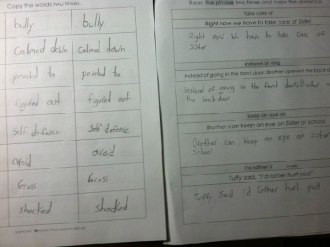 Copy the words two times.
bully bully
Calmed down Calmed down
pointed to pointed to
figured out figured out
Self defense Self defense
avoid avoid
recess recess
shocked shocked
Read the phrase two times and copy the sentence
take care of
Right now we have to take care of Sister
Right now We have to take care of
sister
instead of
Instead of going in the front door, Brother opened the back d
Instead of going in the front door Brother
the back door
keep an eye on
Brother can keep an eye on Sister at school.
Brother can keep an eye on sister
School
I'd rather
Tuffy said, "I'd rather hurt you!"
Tuffy Said I'd rather hurt you!